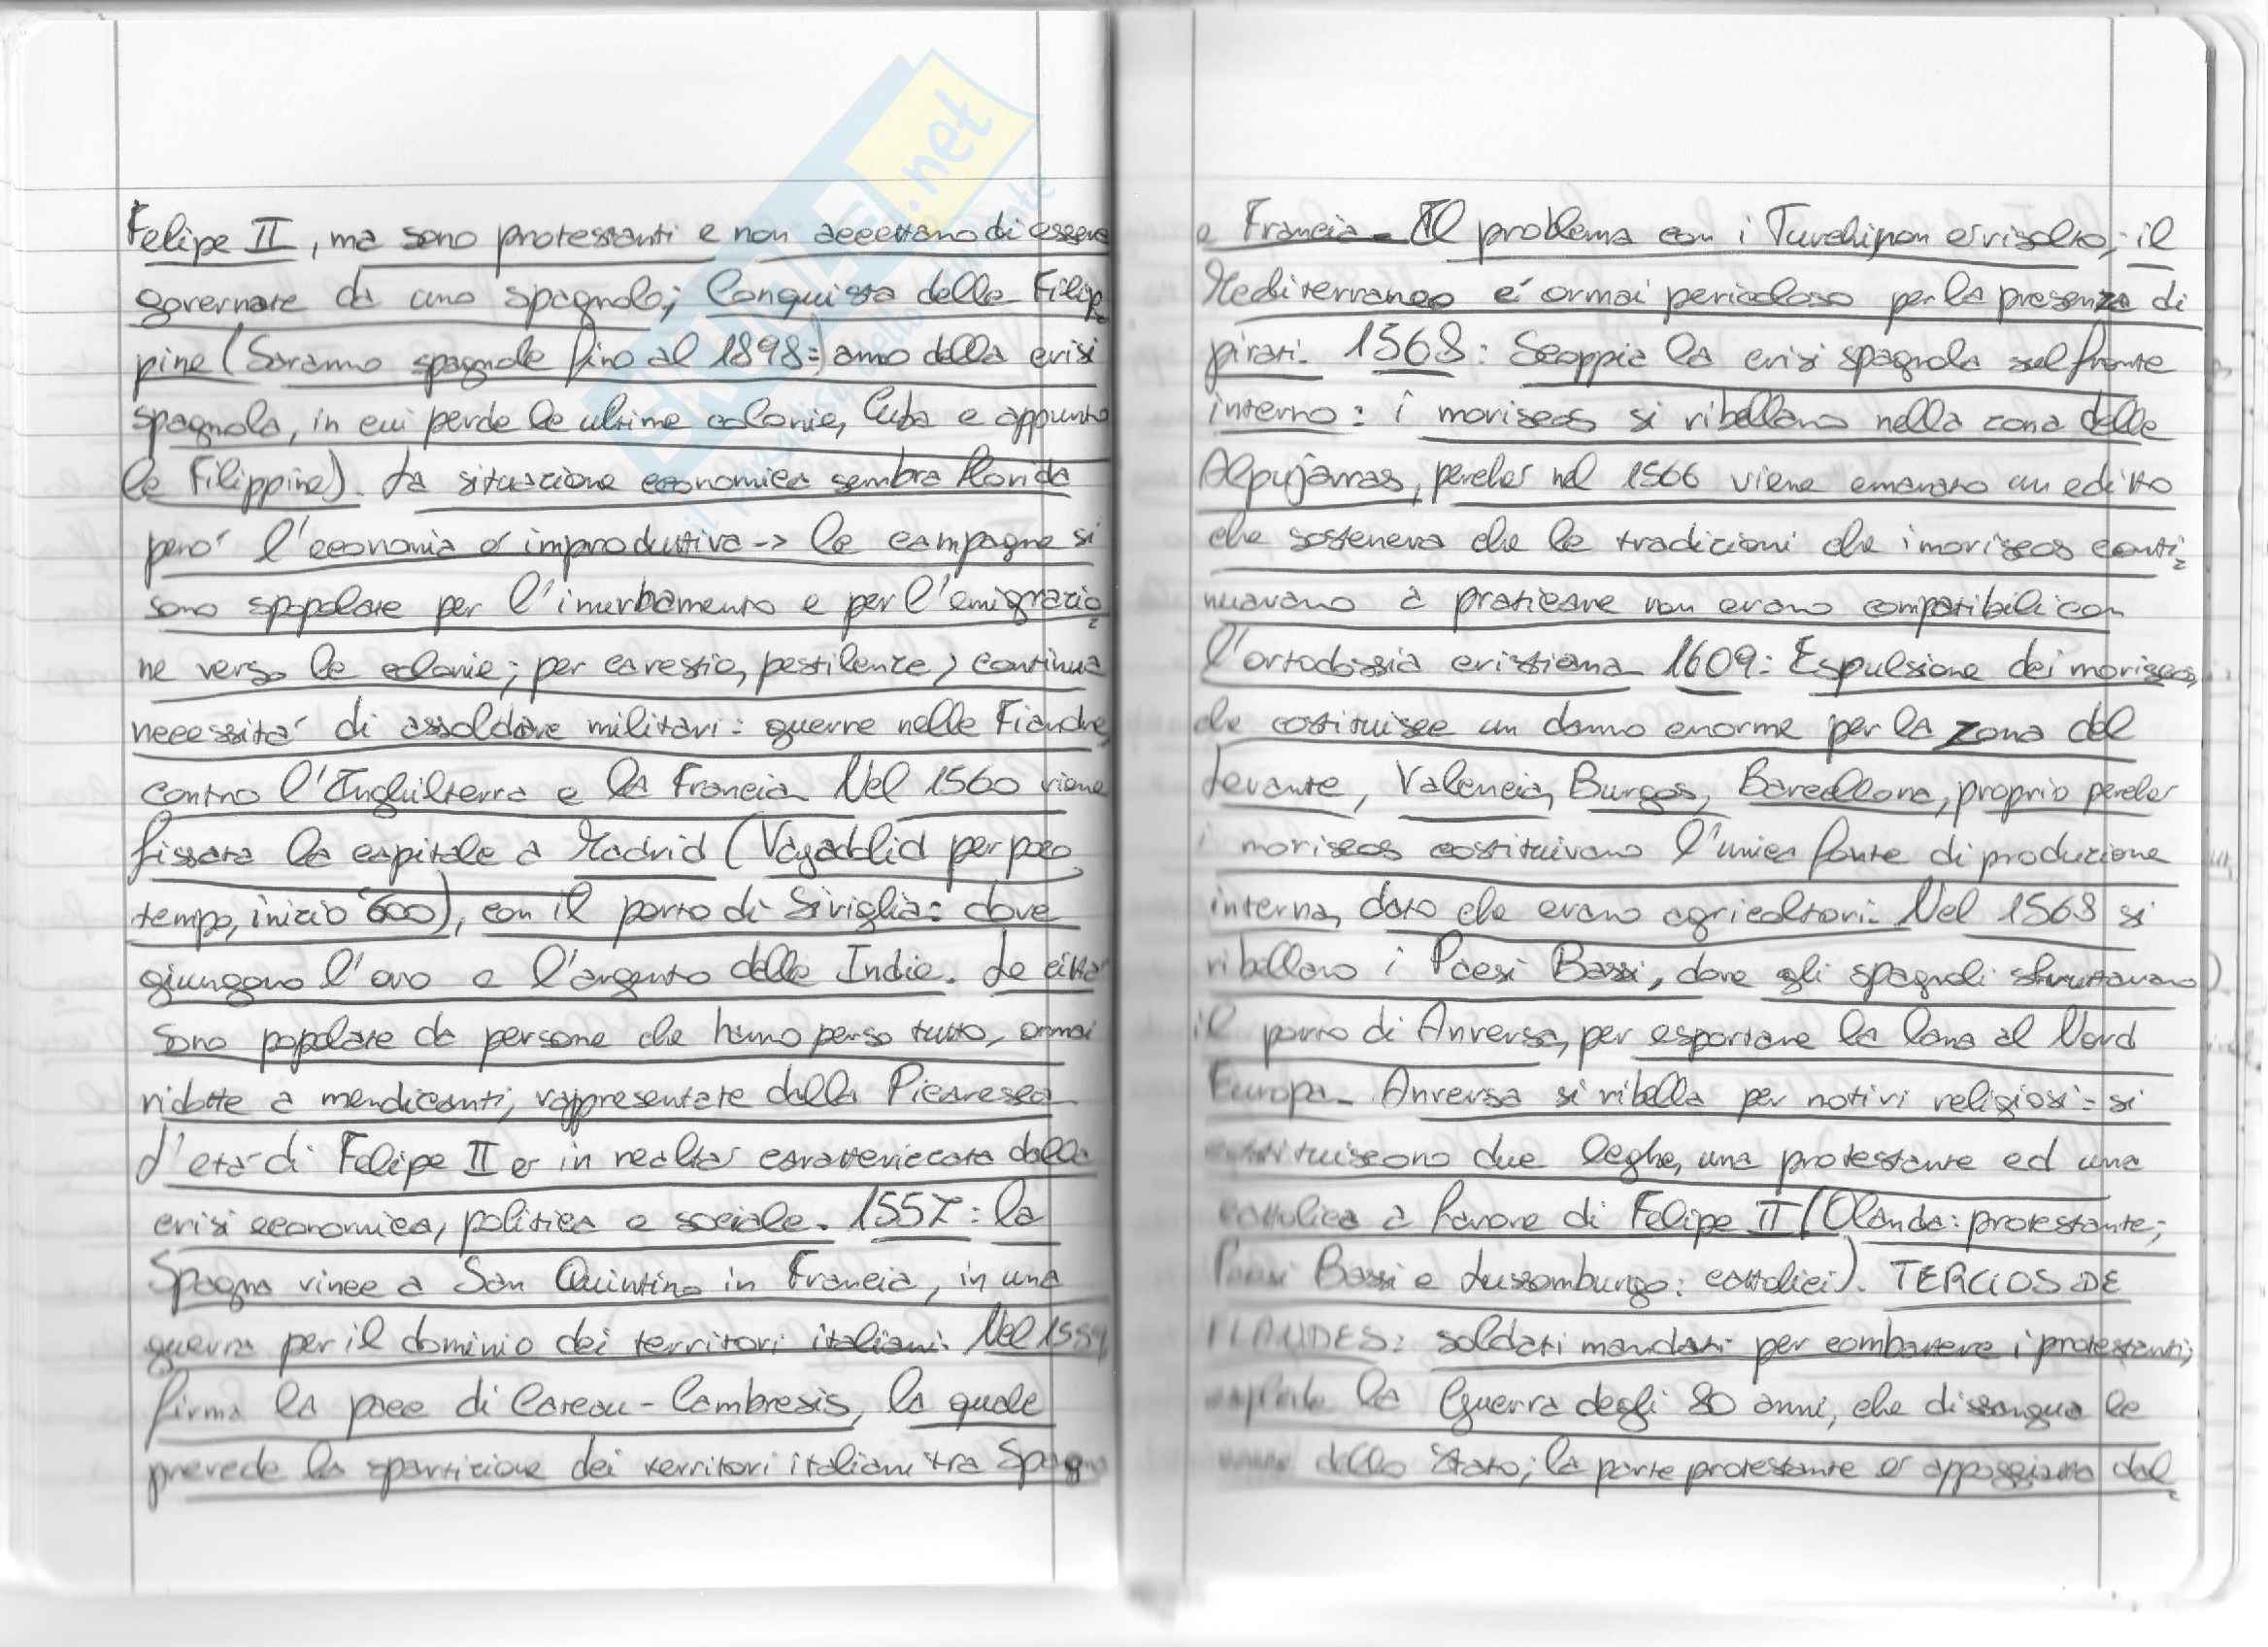 Felipe II, ma sono protestanti e non accettano di essere
governate da uno spagnolo; Conquista delle Filip-
pine (Saranno spagnole fino al 1898: anno della crisi
spagnola, in cui perde le ultime colonie, Cuba e appunto
le Filippine). La situazione economica sembra florida
però l'economia è improduttiva -> le campagne si
sono spopolate per l'inurbamento e per l'emigrazio-
ne verso le colonie; per carestie, pestilenze, continua
necessità di assoldare militari: guerre nelle Fiandre,
contro l'Inghilterra e la Francia. Nel 1560 viene
fissata la capitale a Madrid (Vayadolid per poco
tempo, inizio '600), con il porto di Siviglia: dove
giungono l'oro e l'argento delle Indie. Le città
sono popolate da persone che hanno perso tutto, ormai
ridotte a mendicanti, rappresentate dalla Picaresca
L'età di Felipe II è in realtà caratterizzata dalla
crisi economica, politica e sociale. 1557: la
Spagna vince a San Quintino in Francia, in una
guerra per il dominio dei territori italiani. Nel 1559
firma la pace di Cateau-Cambresis, la quale
prevede la spartizione dei territori italiani tra Spagna
e Francia. Il problema con i Turchi non è risolto; il
Mediterraneo è ormai pericoloso per la presenza di
pirati. 1568: Scoppia la crisi spagnola sul fronte
interno: i moriscos si ribellano nella zona delle
Alpujarras, perché nel 1566 viene emanato un editto
che sosteneva che le tradizioni che i moriscos conti-
nuavano a praticare non erano compatibili con
l'ortodossia cristiana. 1609: Espulsione dei moriscos,
che costituisce un danno enorme per la zona del
Levante, Valencia, Burgos, Barcellona, proprio perché
i moriscos costituivano l'unica fonte di produzione
interna, dato che erano agricoltori. Nel 1568 si
ribellano i Paesi Bassi, dove gli spagnoli sfruttavano
il porto di Anversa, per esportare la lana al Nord
Europa. Anversa si ribella per motivi religiosi: si
costituiscono due leghe, una protestante ed una
cattolica a favore di Felipe II (Olanda: protestante;
Paesi Bassi e Lussemburgo: cattolici). TERCIOS DE
FLANDES: soldati mandati per combattere i protestanti;
la Guerra degli 80 anni, che dissangua le
dello Stato; la parte protestante è appoggiata dal-
SKUOLA.net